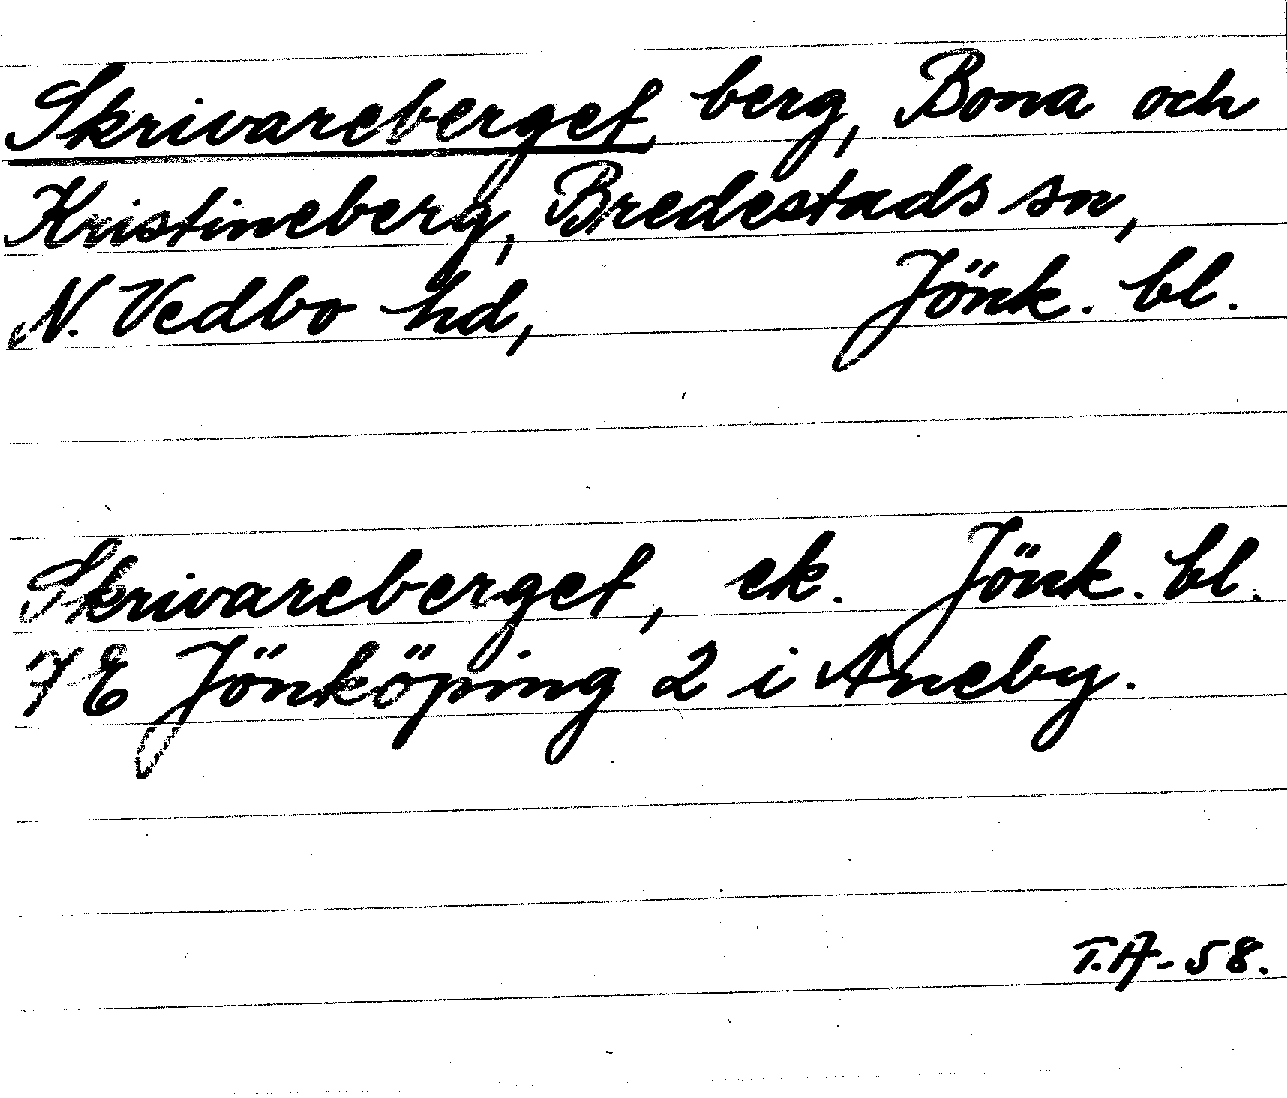 Skrivareberget, berg, Bona och
Kristineberg, Bredestads sn,
N. Vedbo hd, Jönk. bl.
Skrivareberget, ek. Jönk. bl.
7E Jönköping 2 i Aneby.
T.A-58.